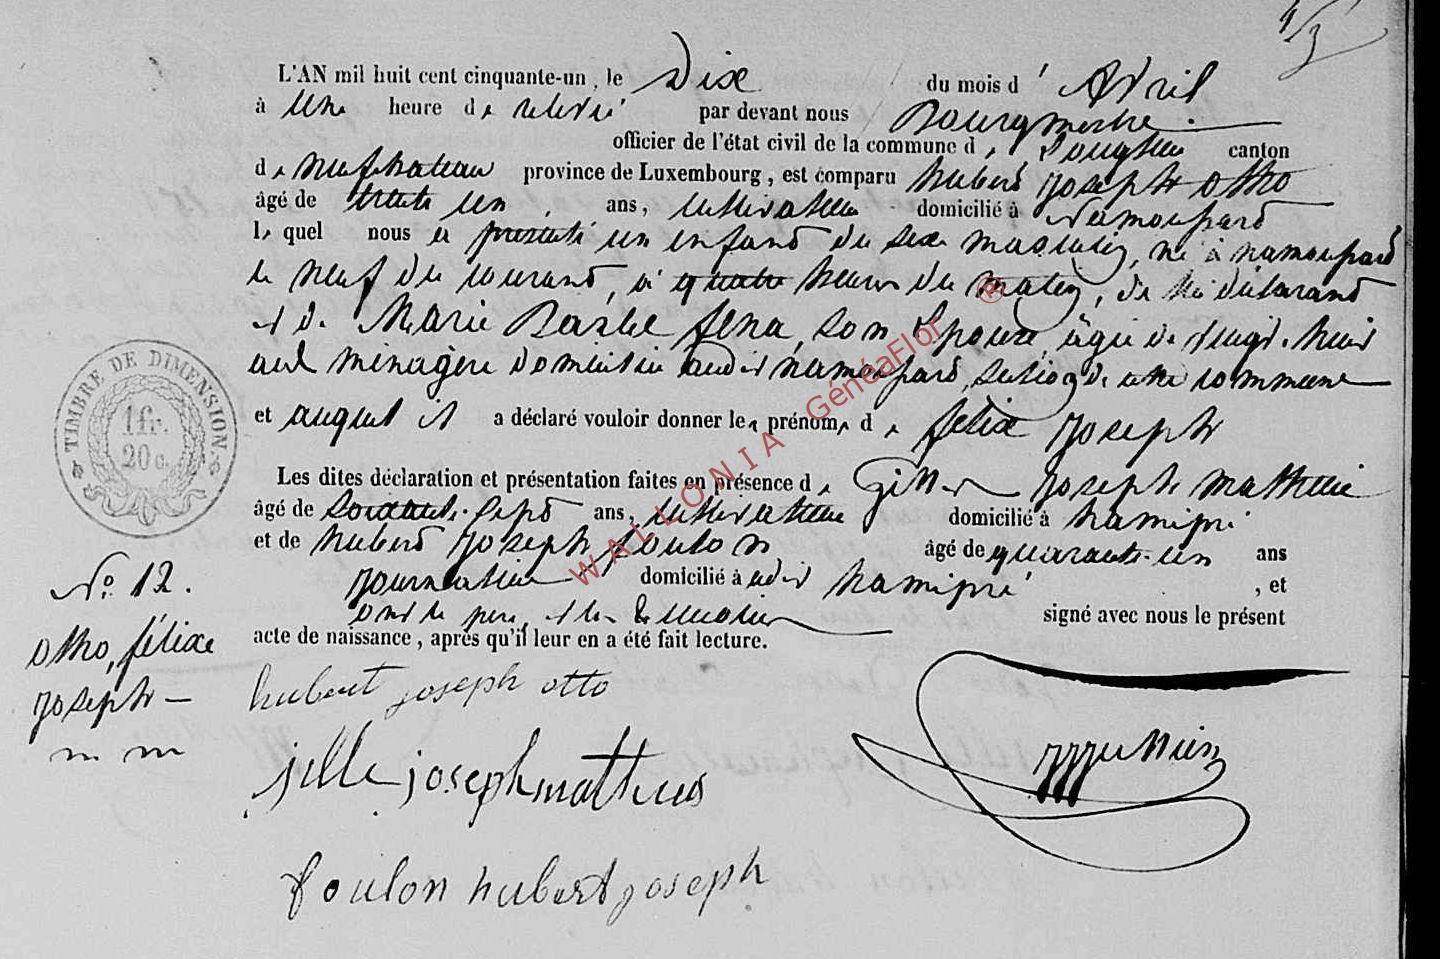 L'AN mil huit cent cinquante-un, le Dix du mois d'Avril
à une heure de relevé par devant nous Bourgmestre
officier de l'état civil de la commune de Longlier canton
de neufchateau province de Luxembourg, est comparu hubert joseph otho
âgé de trente un ans, cultivateur domicilié à Namoupard
lequel nous a présenté un enfant du sexe masculin, né à namoupard
le neuf du courant, à quatre heures du matin, de lui déclarant
et de Marie Barbe fena, son Epouse, âgée de vingt-huit
ans ménagère domiciliée audit namoupard, section de cette commune
et auquel il a déclaré vouloir donner les prénoms de félix joseph
Les dites déclaration et présentation faites en présence de Gille joseph mathieu
âgé de soixante-sept ans, cultivateur domicilié à hamipré
et de hubert joseph foulon âgé de quarante-un ans
journalier domicilié à audit hamipré, et
ont le père, et les témoins signé avec nous le présent
acte de naissance, après qu'il leur en a été fait lecture.
TIMBRE DE DIMENSION
1 fr.
20 c.
No. 12.
otho, félix
joseph —
hubert joseph otto
jille joseph matheus
foulon hubert joseph
WALLONIA GénéaFlor ®